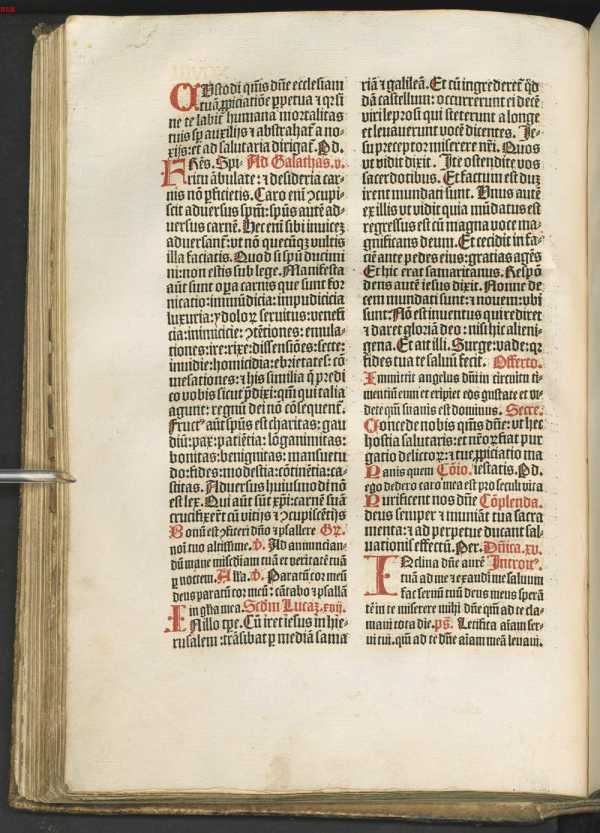 CUstodi qm̄s dn̄e ecclesiam
tuā ꝓpiciatiōe ꝑpetua ⁊ qꝛ si
ne te labit᷑ humana mortalitas
tuis sp̄ auxilijs ⁊ abstrahat᷑ a no⸗
xijs: et ad salutaria dirigat᷑. Ꝑd.
FRēs. Spi⸗ Ad Galathas. v.
ritu ābulate: ⁊ desideria car⸗
nis nō ꝑficietis. Caro eni ꝯcupi⸗
scit adversus spm̄: spūs autē ad⸗
versus carnē. Hec eni sibi invicez
adversant᷑: vt nō quecūqꝫ vultis
illa faciatis. Quod si spū ducimi
ni: non estis sub lege. Manifesta
aūt sunt oꝑa carnis que sunt for
nicatio: inmūdicia: impudicicia
luxuria: ydoloꝝ servitus: venefi
cia: inimicicie: ꝯtētiones: emula⸗
tiones: ire: rixe: dissensiōes: secte:
invidie: homicidia: ebrietates: cō
mesationes: ⁊ his similia q̄ predi
co vobis sicut p̄dixi: qm̄ qui talia
agunt: regnū dei nō cōsequent᷑.
Fruct⁹ aūt spūs est charitas: gau
diū: pax: patiētia: lōganimitas:
bonitas: benignitas: mansuetu
do: fides: modestia: cōtinētia: ca⸗
stitas. Adversus huiusmodi nō
est lex. Qui aūt sūt xp̄i: carnē suā
crucifixer̄t cū vitijs ⁊ ꝯcupiscētijs
Bonū est ꝯfiteri dn̄o ⁊ psallere Gr̄.
noi tuo altissime. V̄. Ad annuncian⸗
dū mane miscdiam tuā et veritatē tuā
ꝑ noctem. Alla. V̄. Paratū cor meū
deus paratū cor meū: cātabo ⁊ psallā
in glīa mea. Scd̄m Lucaꝫ. xvij.
IN illo tꝑe. Cū iret iesus in hie⸗
rusalem: trāsibat ꝑ mediā sama
riā ⁊ galileā. Et cū ingrederet᷑ q̄d
dā castellum: occurrerunt ei decē
viri leprosi qui steterunt a longe
et levaverunt vocē dicentes. Je⸗
su preceptor miserere nr̄i. Quos
vt vidit dixit. Ite ostendite vos
sacerdotibus. Et factum est duꝫ
irent mundati sunt. Unus autē
ex illis vt vidit quia mūdatus est
regressus est cū magna voce ma⸗
gnificans deum. Et cecidit in fa⸗
ciē ante pedes eius: gratias agēs
Et hic erat samaritanus. Respō
dens autē iesus dixit. Nonne de
cem mundati sunt: ⁊ novem: vbi
sunt: Nō est inventus qui rediret
⁊ daret gloriā deo: nisi hic alieni⸗
gena. Et ait illi. Surge: vade: qꝛ
fides tua te salvū fecit. Offerto.
Immittit angelus dn̄i in circuitu ti⸗
mentiū eum et eripiet eos gustate et vi⸗
dete qm̄ suavis est dominus. Secre.
Concede nobis qm̄s dn̄e: vt hec
hostia salutaris: et nr̄oꝝ fiat pur
gatio delictoꝝ: ⁊ tue ꝓpiciatio ma
Panis quem Cōio. iestatis. Ꝑd.
ego dedero caro mea est pro seculi vita
Purificent nos dn̄e Cōplenda.
deus semper ⁊ muniāt tua sacra
menta: ⁊ ad perpetue ducant sal⸗
vationis effectū. Per. Dn̄ica. xv.
INclina dn̄e autē Introit⁹.
tuā ad me ⁊ exaudi me salvum
fac servū tuū deus meus sperā
tē in te miserere mihi dn̄e qm̄ ad te cla⸗
mavi tota die. ps̄. Letifica aīam ser⸗
vi tui. qm̄ ad te dn̄e aīam meā levavi.